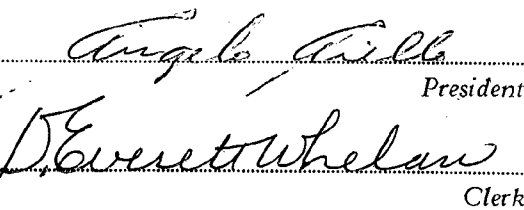 Angelo Aiello
President
D. Everett Whelan
Clerk